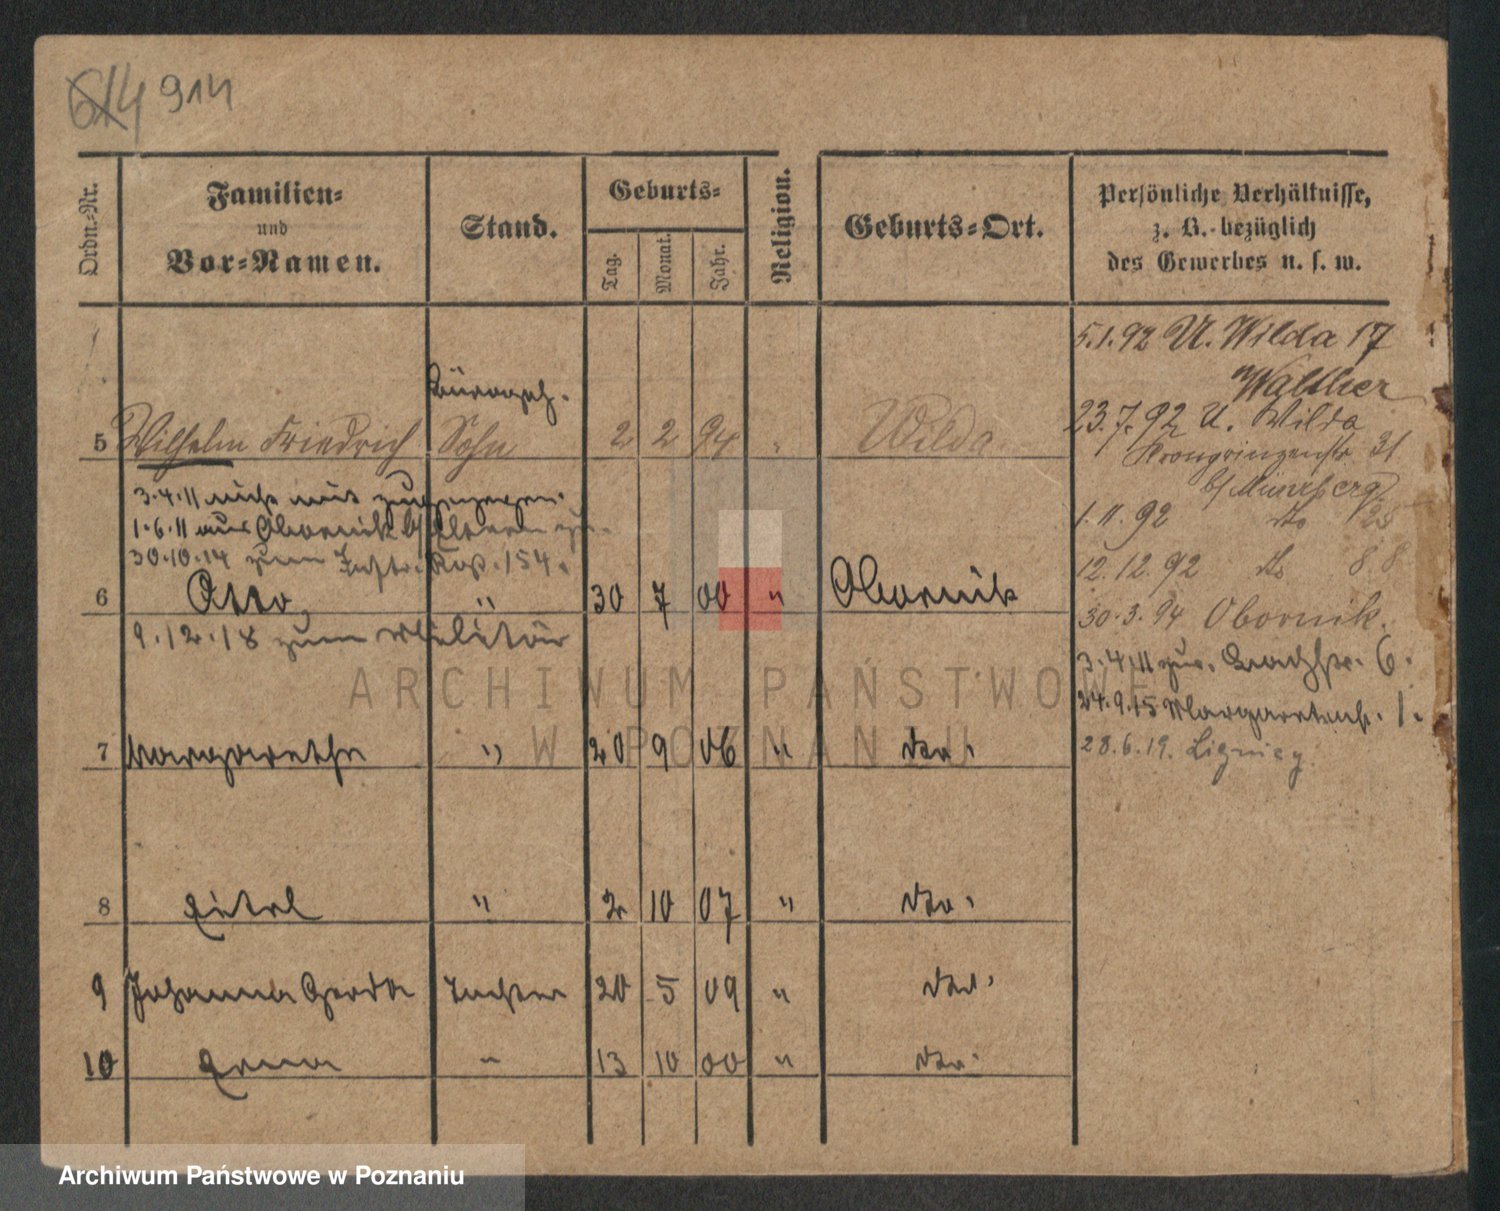 614 914
Ordn.-Nr.
Familien-
und
Vor-Namen.
Stand.
Geburts-
Tag.
Monat.
Jahr.
Religion.
Geburts-Ort.
Persönliche Verhältnisse,
z. B. bezüglich
des Gewerbes u. s. w.
5.1.92 U. Wilda 17
Walther
23.7.92 U. Wilda
Kronprinzenstr 31
b/ Münzberg
Bürogeh.
5 Wilhelm Friedrich Sohn 2 2 94 " Wilda
3.4.11 nicht mit zugezogen.
1.6.11 aus Obornik b/ Eltern zu.
30.10.14 zum Inftr. Rgt. 154.
1.11.92 do 25
12.12.92 do 88
6 Otto, " 30 7 00 " Obornik
30.3.94 Obornik.
9.12.18 zum Militär
3.4.11 zur. Bachstr. 6.
24.9.15 Margaretenstr. 1.
28.6.19. Liegnitz
7 Margarethe " 20 9 06 " dto.
8 Eitel " 2 10 07 " dto.
9 Johanna Gerda Tochter 20 5 09 " dto.
10 Erna " 13 10 00 " dto.
ARCHIWUM PAŃSTWOWE
W POZNANIU
Archiwum Państwowe w Poznaniu